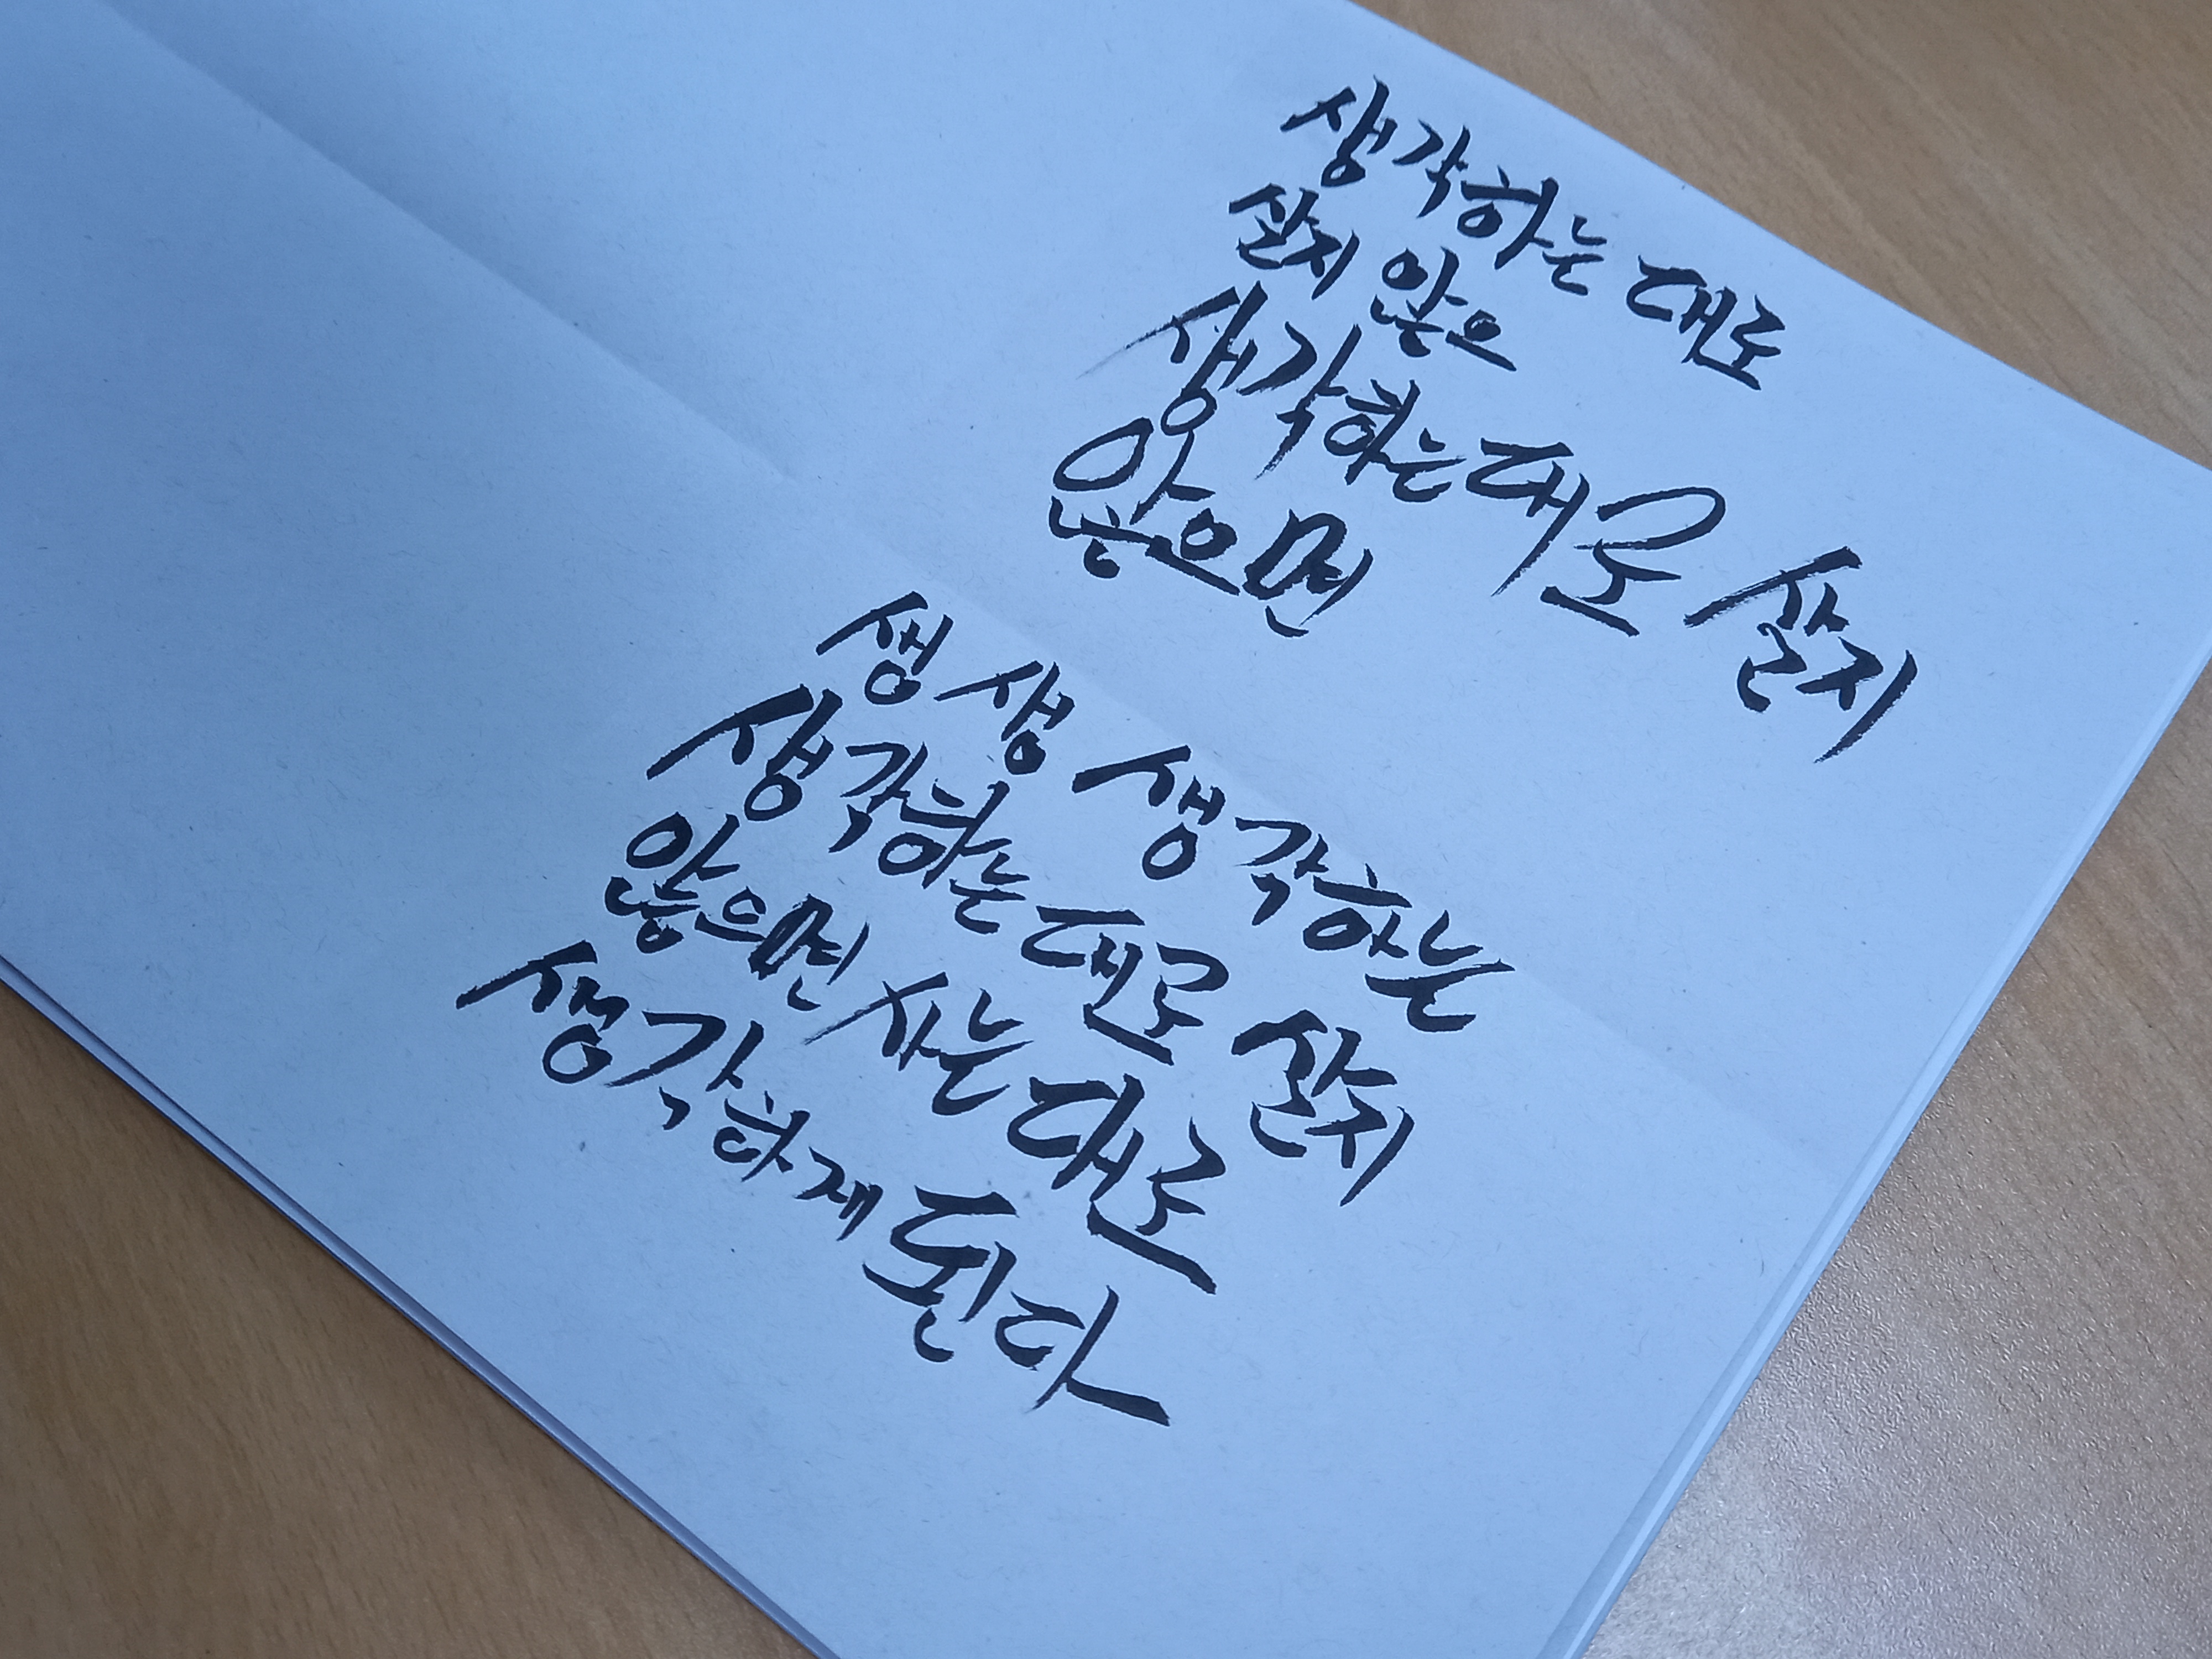 생각하는 대로
살지 않으
생각하는대로 살지
않으면
생 생 생각하는
생각하는 대로 살지
않으면 사는 대로
생각하게 된다